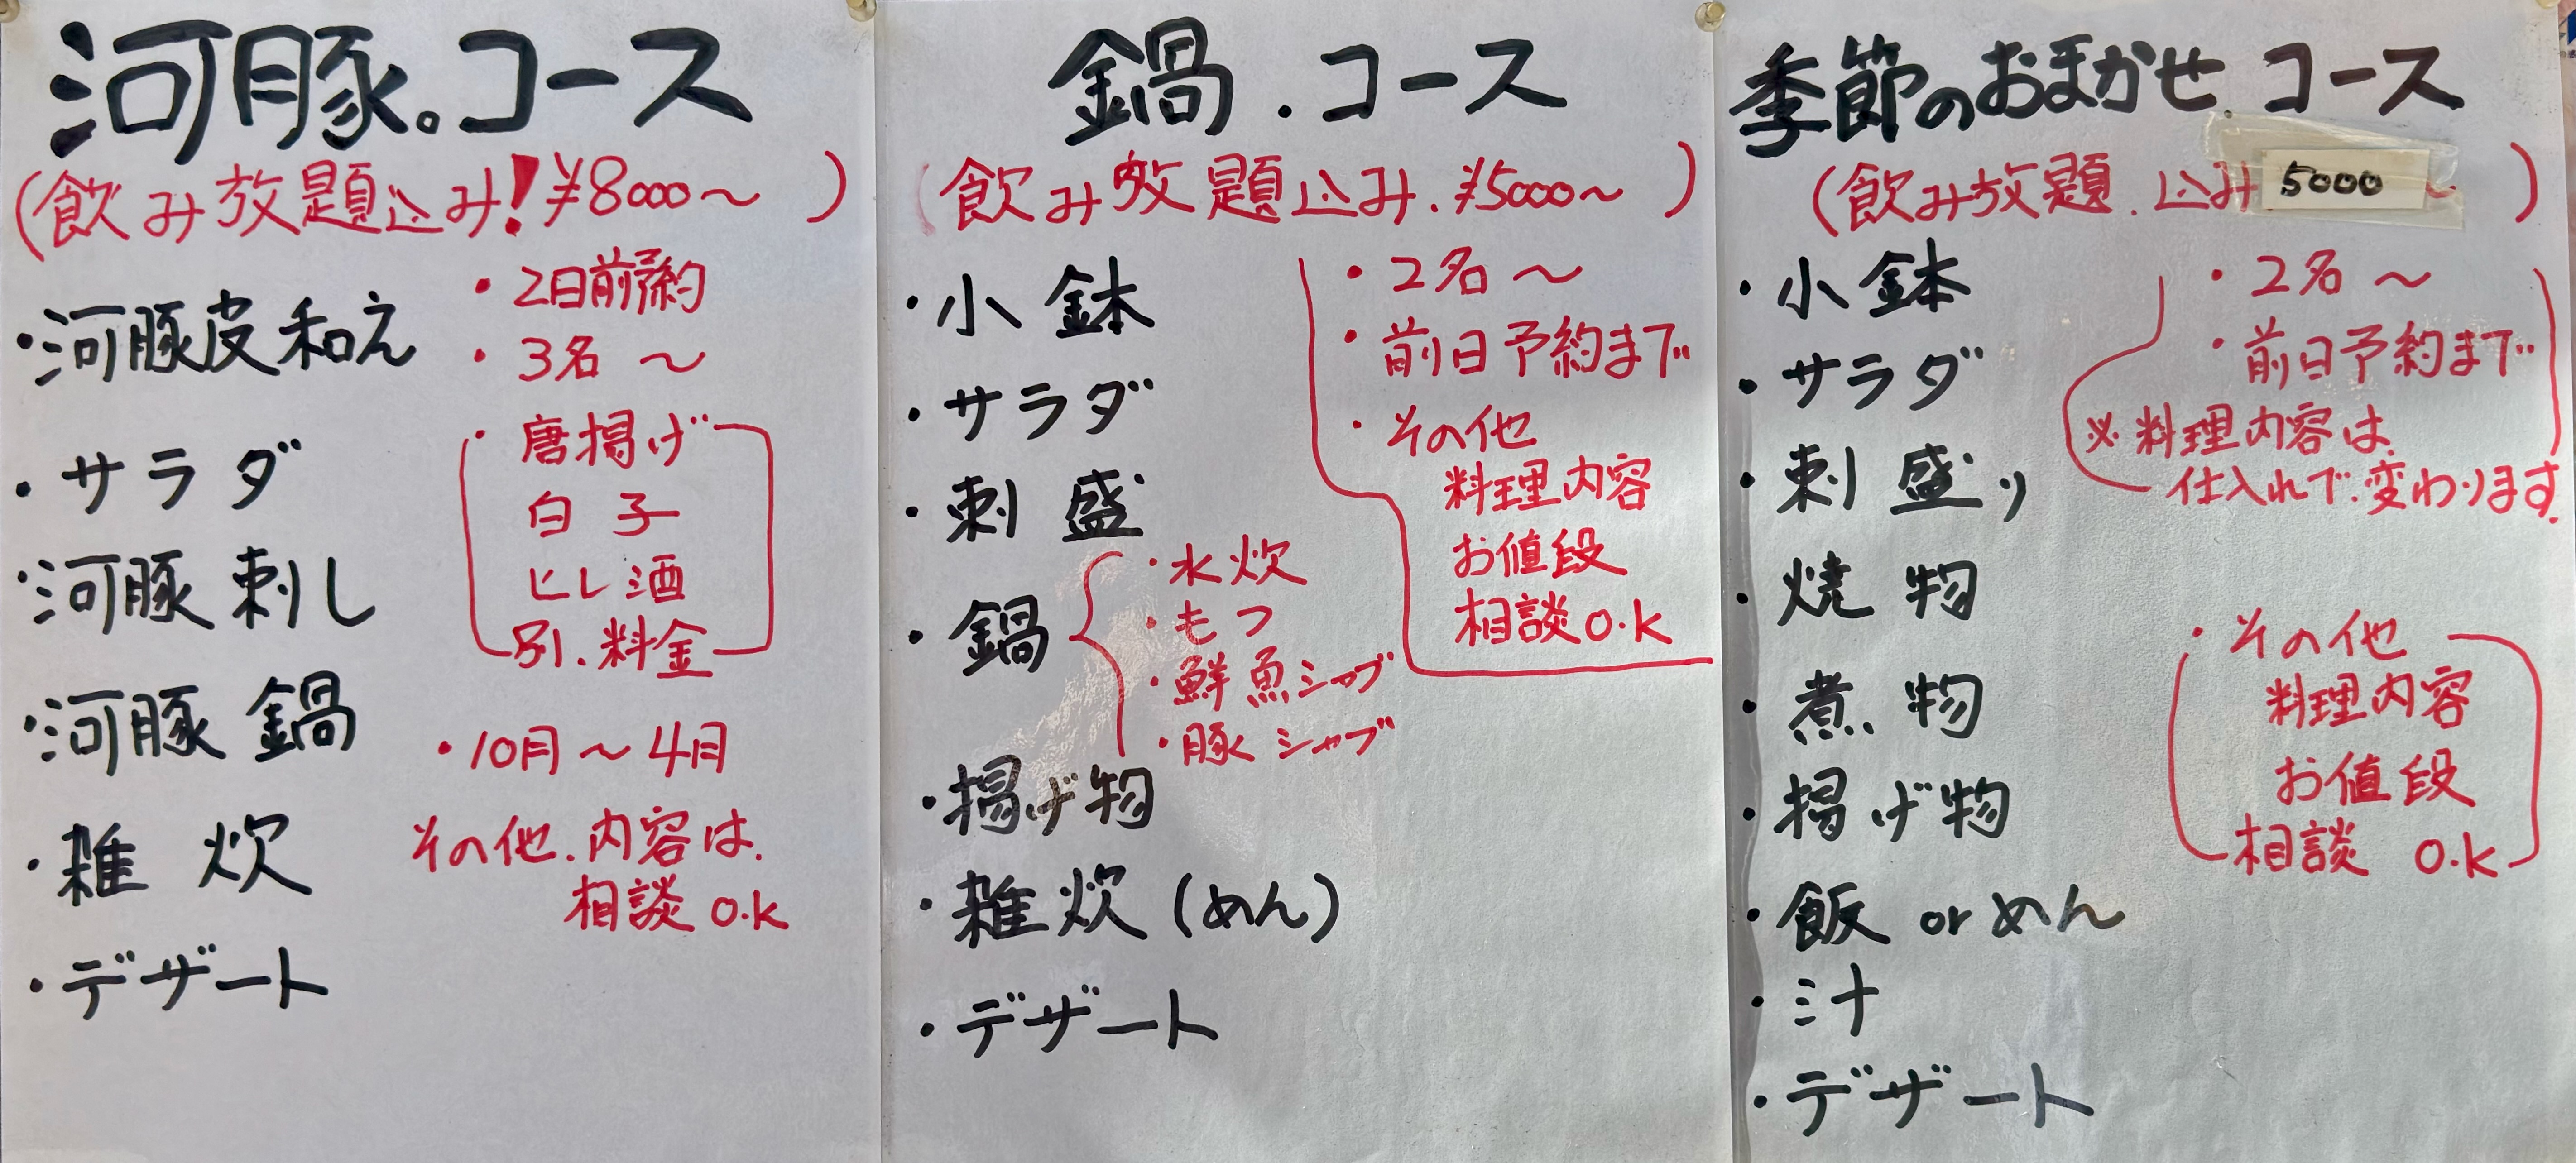 河豚。コース
(飲み放題込み!¥8000～ )
・河豚皮和え
・サラダ
・河豚刺し
・河豚鍋
・雑炊
・デザート
・2日前予約
・3名～
・唐揚げ
白子
ヒレ酒
別.料金
・10月～4月
その他.内容は.
相談O.K
鍋.コース
(飲み放題込み.¥5000～ )
・小鉢
・サラダ
・刺盛
・鍋
・水炊
・もつ
・鮮魚シャブ
・豚シャブ
・揚げ物
・雑炊(めん)
・デザート
・2名～
・前日予約まで
・その他
料理内容
お値段
相談O.K
季節のおまかせ.コース
(飲み放題.込み 5000～ )
・小鉢
・サラダ
・刺盛り
・焼物
・煮物
・揚げ物
・飯orめん
・汁
・デザート
・2名～
・前日予約まで
※料理内容は.
仕入れで.変わります.
・その他
料理内容
お値段
相談 O.K